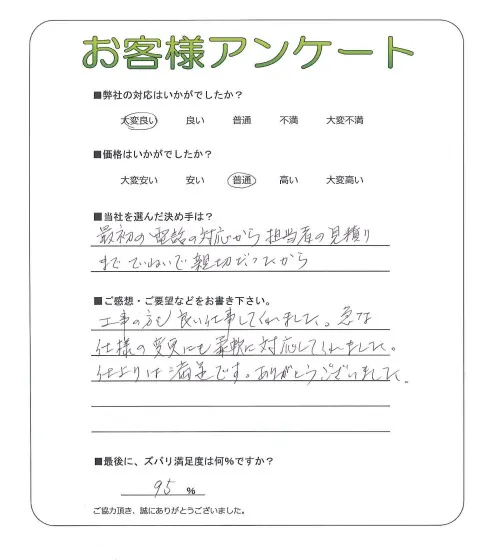 お客様アンケート
■弊社の対応はいかがでしたか？
大変良い 良い 普通 不満 大変不満
■価格はいかがでしたか？
大変安い 安い 普通 高い 大変高い
■当社を選んだ決め手は？
最初の電話の対応から担当者の見積り
まで ていねいで親切だったから
■ご感想・ご要望などをお書き下さい。
工事の方も良い仕事してくれました。急な
仕様の変更にも柔軟に対応してくれました。
仕上りは満足です。ありがとうございました。
■最後に、ズバリ満足度は何%ですか？
95 %
ご協力頂き、誠にありがとうございました。